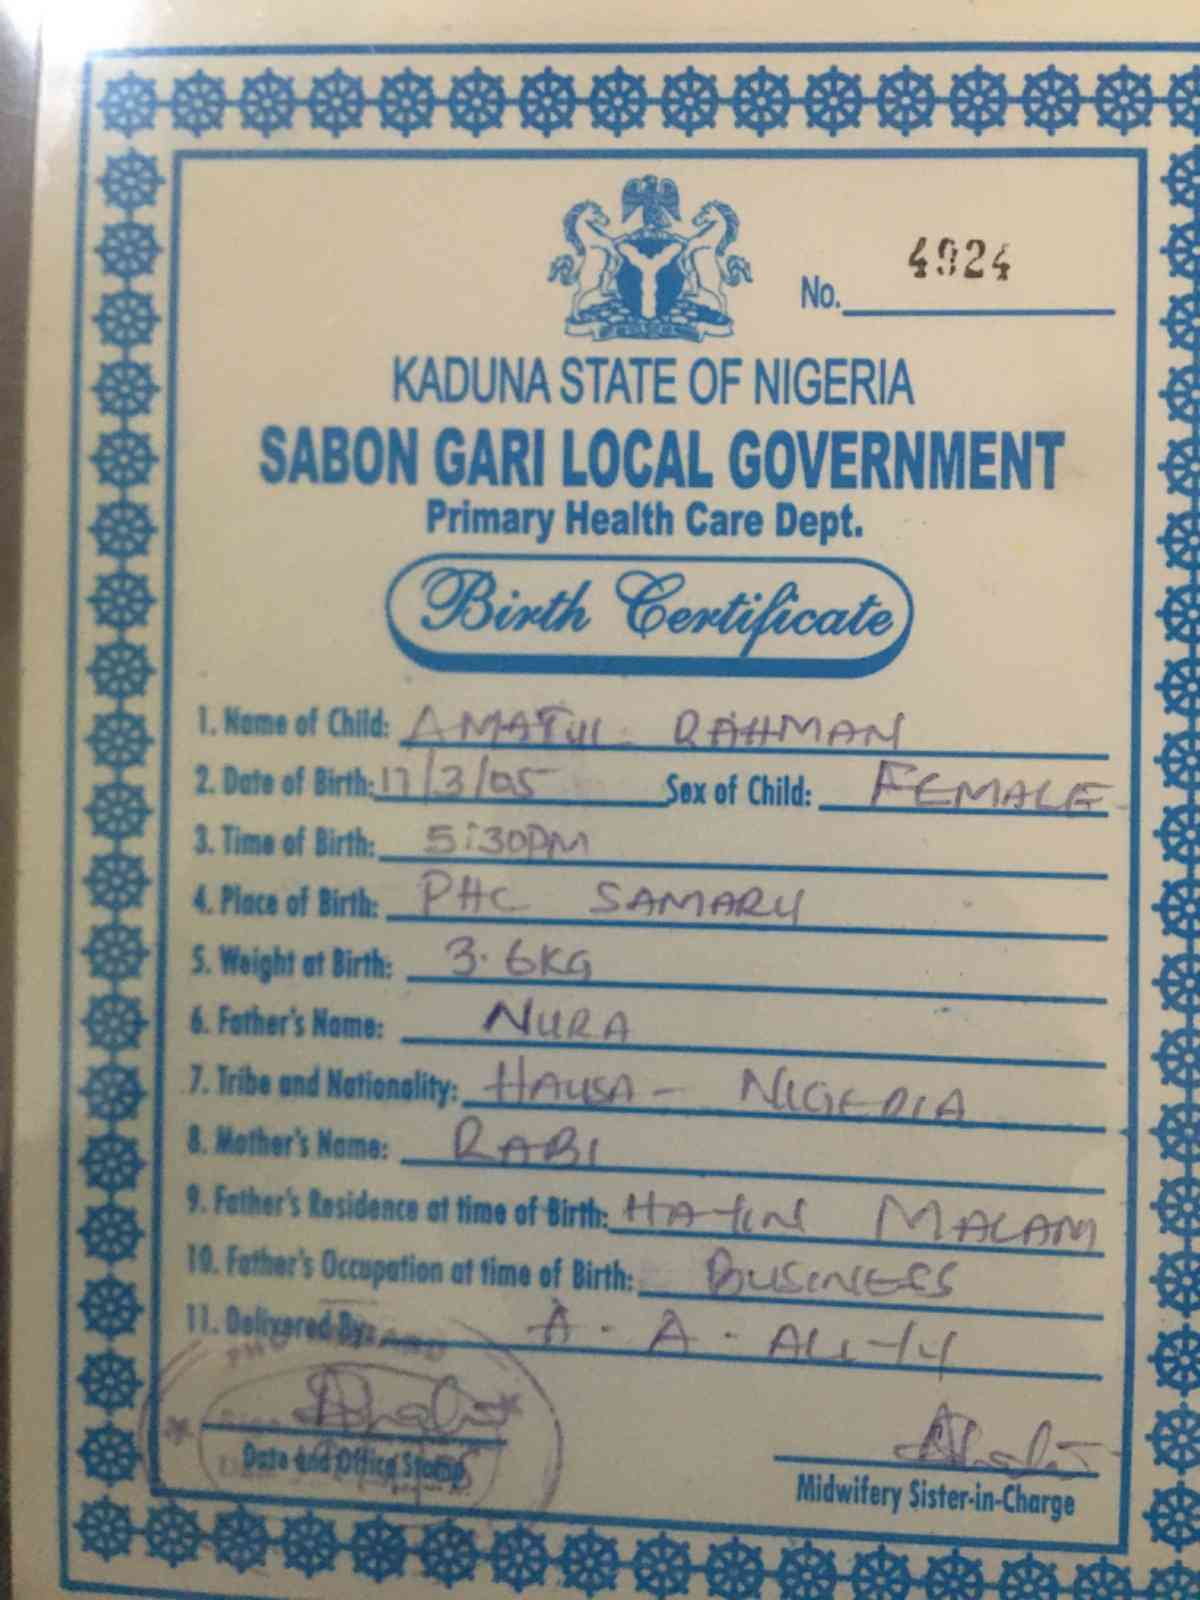 No. 4924
KADUNA STATE OF NIGERIA
SABON GARI LOCAL GOVERNMENT
Primary Health Care Dept.
Birth Certificate
1. Name of Child: AMATUL RAHMAN
2. Date of Birth: 17/3/05 Sex of Child: FEMALE
3. Time of Birth: 5:30PM
4. Place of Birth: PHC SAMARU
5. Weight at Birth: 3.6KG
6. Father's Name: NURA
7. Tribe and Nationality: HAUSA - NIGERIA
8. Mother's Name: RABI
9. Father's Residence at time of Birth: HAYIN MALAM
10. Father's Occupation at time of Birth: BUSINESS
11. Delivered By: A. A. ALIYU
Date and Office Stamp
Midwifery Sister-in-Charge